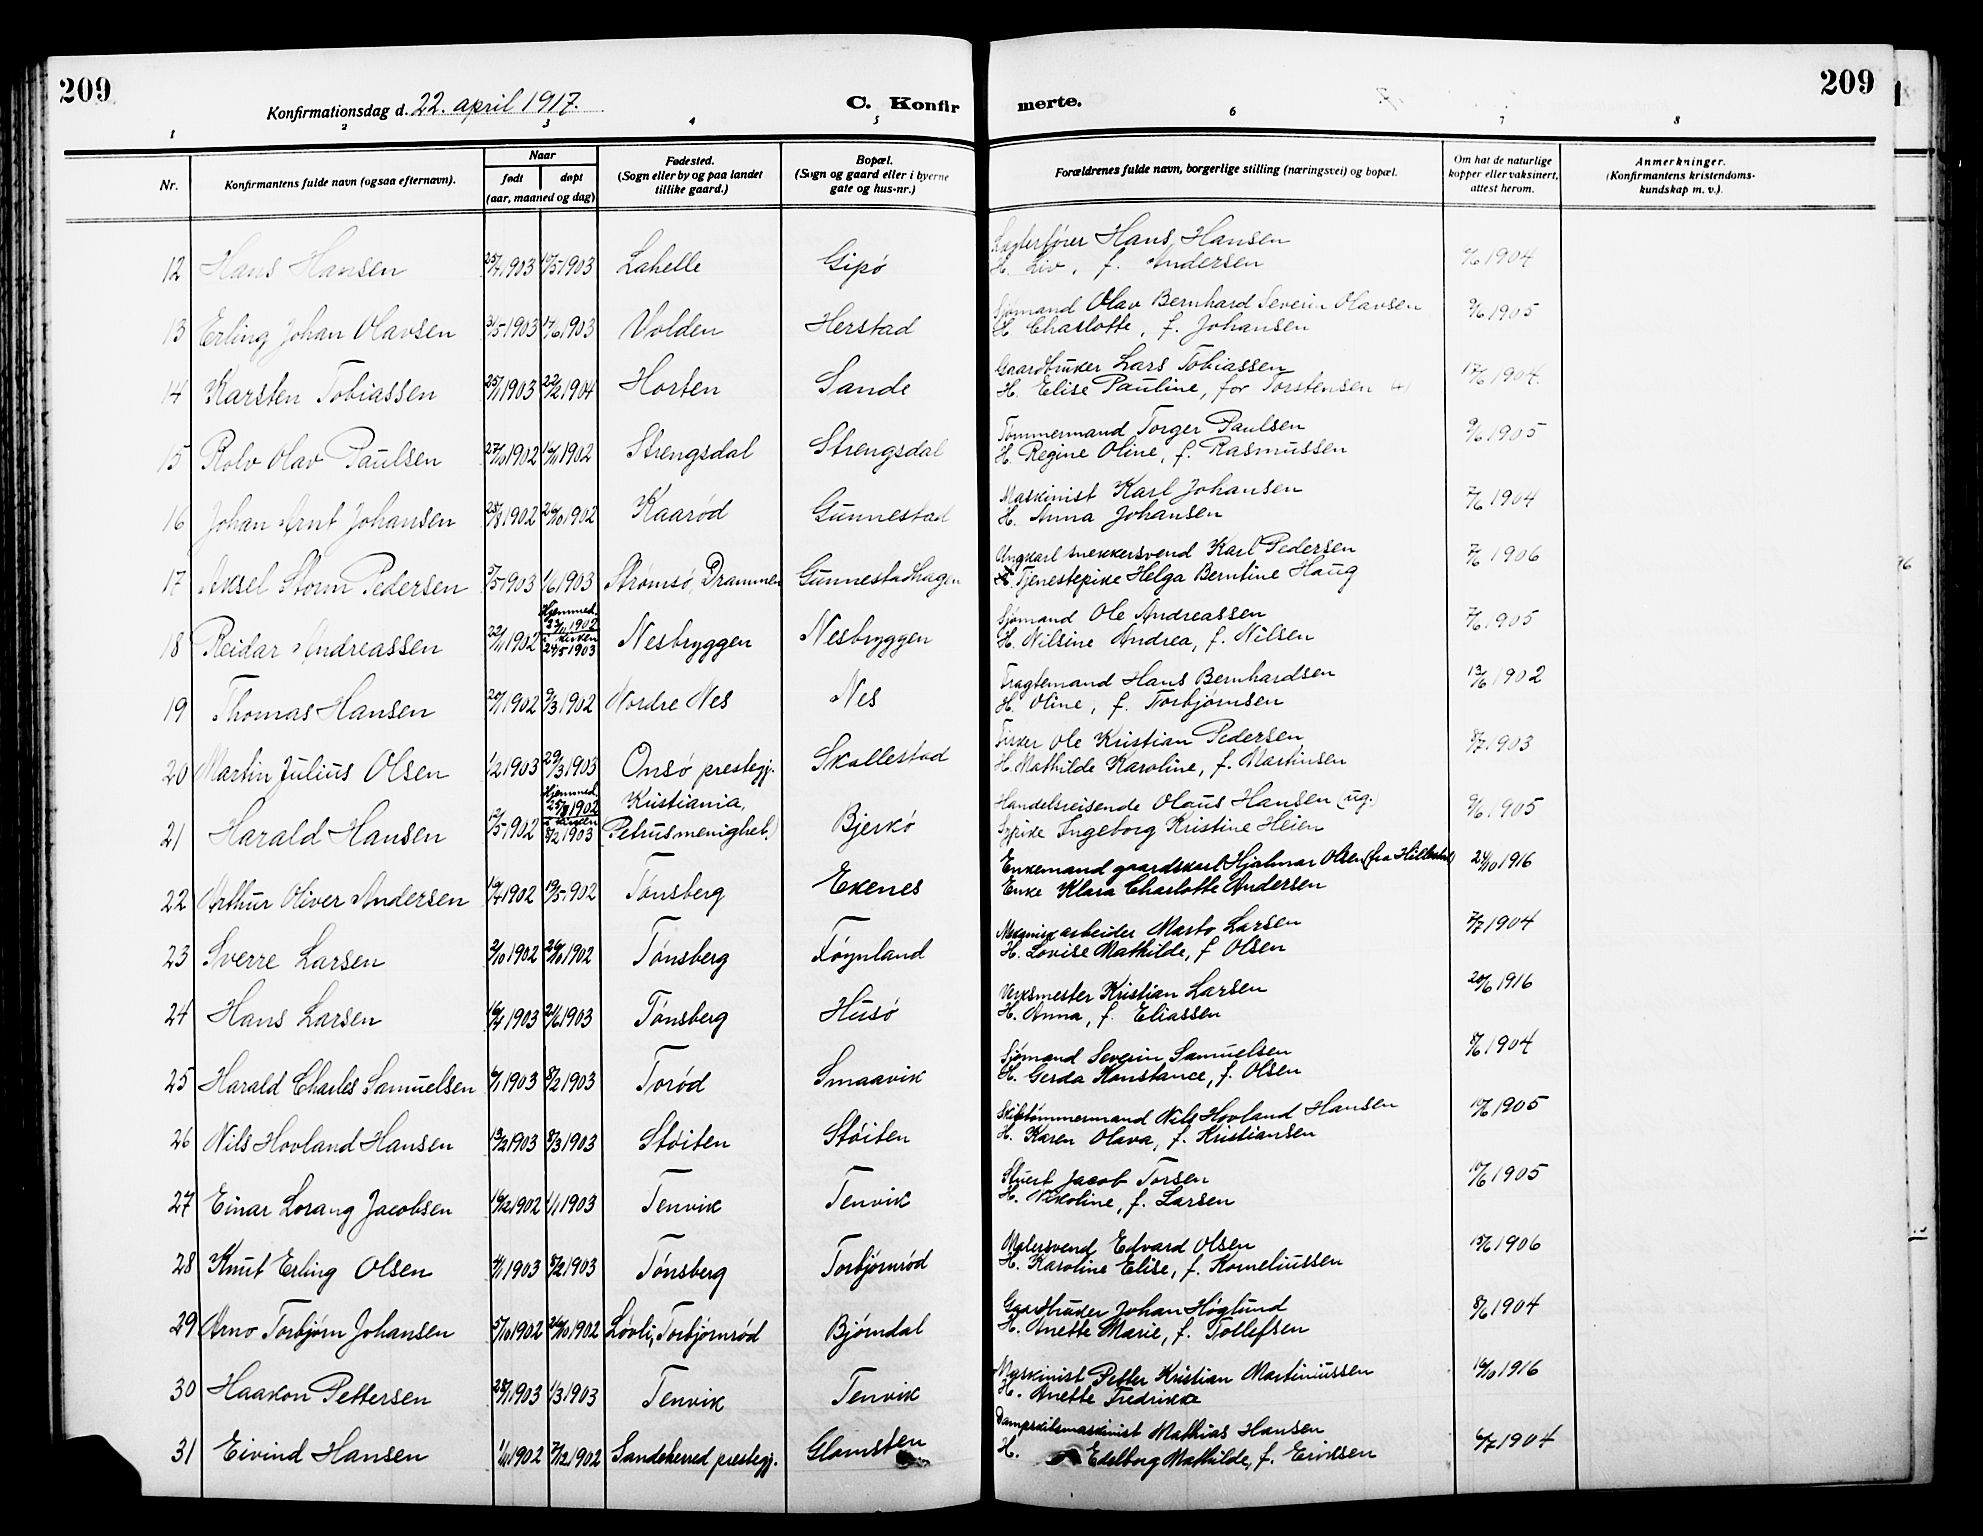 209
209
Konfirmationsdag d. 22. april 1917.
C. Konfir
merte.
1 2 3 4 5 6 7 8
Nr.
Konfirmantens fulde navn (ogsaa efternavn).
Naar
født
døpt
(aar, maaned og dag)
Fødested.
(Sogn eller by og paa landet
tillike gaard.)
Bopæl.
(Sogn og gaard eller i byerne
gate og hus-nr.)
Forældrenes fulde navn, borgerlige stilling (næringsvei) og bopæl.
Om hat de naturlige
kopper eller vaksinert,
attest herom.
Anmerkninger.
(Konfirmantens kristendoms-
kundskap m. v.).
12 Hans Hansen 1903 1903 Lahelle Gipø
Hans Hansen
H. Liv, f. Andersen
9/6 1904
13 Erling Johan Olavsen 3/5 1903 14/6 1903 Volden Herstad
Sjømand Olav Bernhard Severin Olavsen
H. Charlotte, f. Johansen
9/6 1905
14 Karsten Tobiassen 25/11903 22/2 1904 Horten Sande
Gaardbruker Lars Tobiassen
H. Elise Pauline, før Torstensen
17/6 1904.
15 Rolv Olav Paulsen 27/10 1902 16/11 1902 Strengsdal Strengsdal
Tømmermand Torger Paulsen
H. Regine Oline, f. Rasmussen
9/6 1905
16 Johan Arnt Johansen 25/8 1902 26/10 1902 Kaarød Gunnestad
Maskinist Karl Johansen
H. Anna Johansen
7/6 1904
17 Aksel Storm Pedersen 1903 1/6 1903 Strømsø, Drammen Gunnestadhagen
Ungkarl snekkersvend Karl Pedersen
Tjenestepike Helga Berntine Haug
7/6 1906
18 Reidar Andreassen 22/11 1902 Nesbryggen Nesbryggen
Hjemmed.
23/11 1902
i kirken
24/5 1903
Sjømand Ole Andreassen
H. Nilsine Andrea, f. Nilsen
7/6 1905
19 Thomas Hansen 20/1 1902 9/3 1902 Nordre Nes Nes
Fragtemand Hans Bernhardsen
H. Oline, f. Torbjørnsen
13/6 1902
20 Martin Julius Olsen 1/2 1903 29/3 1903 Onsø prestegj. Skallestad
Fisker Ole Kristian Pedersen
H. Mathilde Karoline, f. Martinsen
8/7 1903
21 Harald Hansen 1902 Kristiania,
Petrusmenighet. Bjerkø
Hjemmed.
1902
i kirken
8/2 1903
Handelsreisende Olaus Hansen (ug.)
Sypike Ingeborg Kristine Heien
9/6 1905
22 Arthur Oliver Andersen 1902 1902 Tønsberg Ekenes
Enkemand gaardskarl Hjalmar Olsen (fra Hillestad)
Enke Klara Charlotte Andersen
24/10 1916
23 Sverre Larsen 2/10 1902 26/10 1902 Tønsberg Føynland
arbeider Larsen
H. Lovise Mathilde, f Olsen
7/7 1904
24 Hans Larsen 16/4 1903 21/6 1903 Tønsberg Husø
Verksmester Kristian Larsen
H. Anna, f. Eliassen
20/6 1916
25 Harald Charles Samuelsen 1903 8/2 1903 Torød Smaavik
Sjømand Severin Samuelsen
H. Gerda Konstance, f. Olsen
8/6 1904
26 Nils Hovland Hansen 13/2 1903 8/3 1903 Støiten Støiten
Skibstømmermand Nils Hovland Hansen
H. Karen Olava, f. Kristiansen
10/6 1905
27 Einar Lorang Jacobsen 16/12 1902 1/1 1903 Tenvik Tenvik
Stuert Jacob Torsen
H. Nikoline, f. Larsen
10/6 1905
28 Knut Erling Olsen 4/1 1903 8/2 1903 Tønsberg Torbjørnrød
Malersvend Edvard Olsen
H. Karoline Elise, f. Korneliussen
15/6 1906
29 Arno Torbjørn Johansen 5/10 1902 26/10 1902 Løvli, Torbjørnrød Bjørndal
Gaardbruker Johan Høglund
H. Anette Marie, f. Tollefsen
8/6 1904
30 Haakon Pettersen 28/1 1903 1/3 1903 Tenvik Tenvik
Maskinist Petter Kristian Martiniussen
H. Anette Fredrikke
16/10 1916
31 Eivind Hansen 1/11 1902 7/12 1902 Sandeherred prestegj. Glomsten
Dampskibsmaskinist Mathias Hansen
H. Edelborg Mathilde, f. Eriksen
6/7 1904